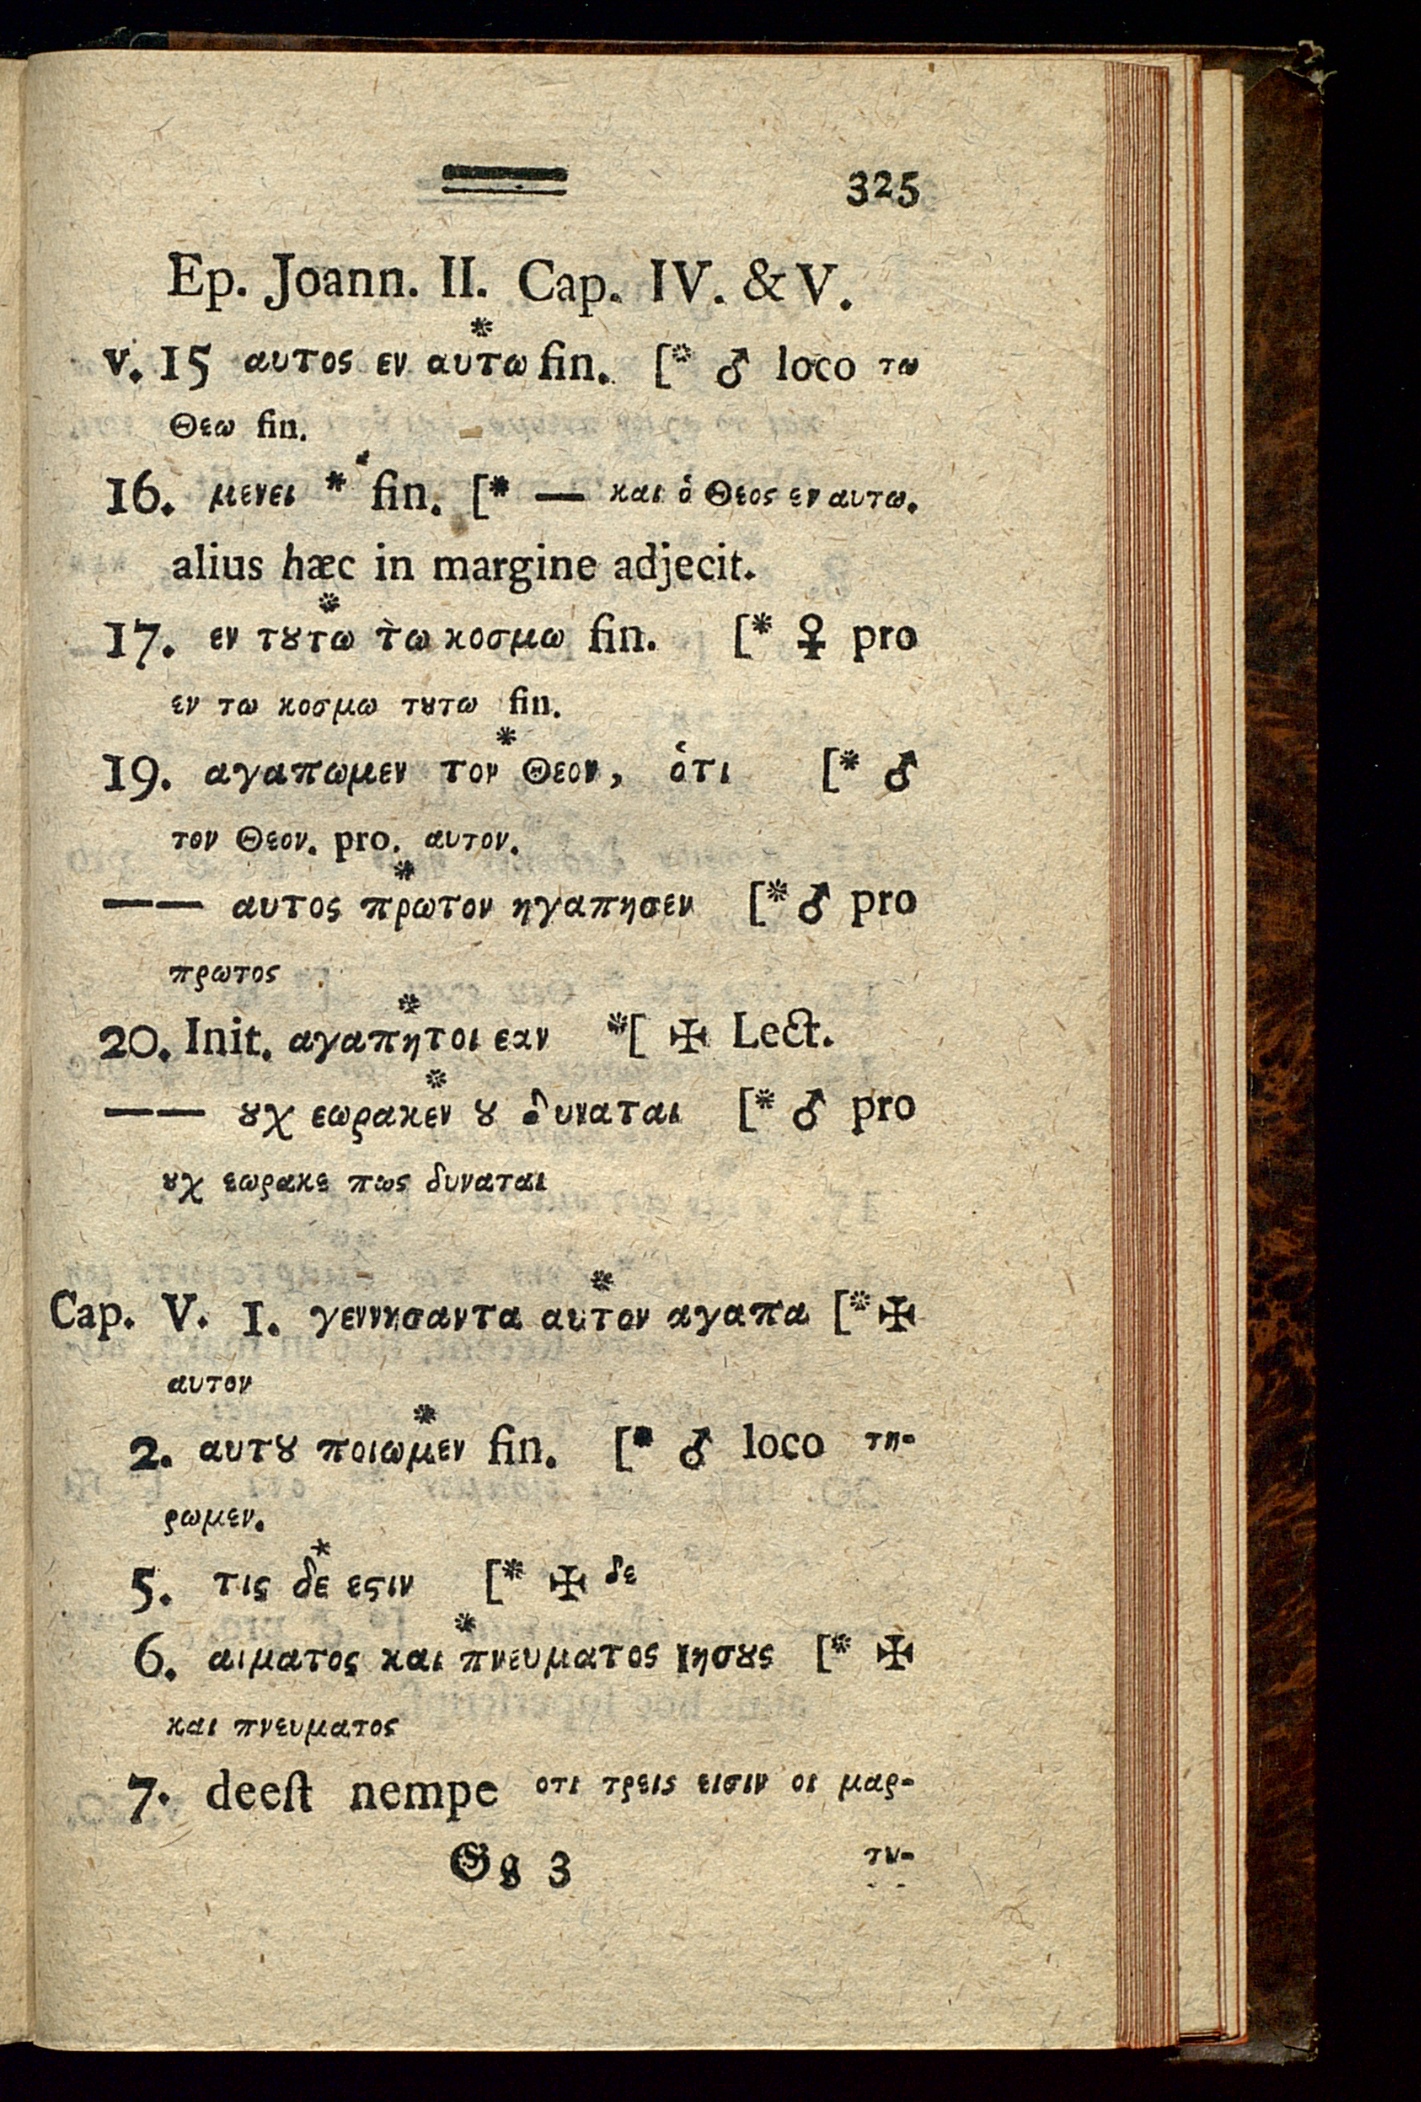 325
Ep. Joann. II. Cap. IV. & V.
v. 15 αυτος εν αυτω* fin. [* ♂ loco τω
Θεω fin.
16. μενει * fin. [* — και ὁ Θεος εν αυτω.
alius hæc in margine adjecit.
17. εν τȣτω* τω κοσμω fin. [* ♀ pro
εν τω κοσμω τȣτω fin.
19. αγαπωμεν τον Θεον*, ὁτι [* ♂
τον Θεον. pro. αυτον.
—— αυτος πρωτον* ηγαπησεν [* ♂ pro
πρωτος
20. Init. αγαπητοι* εαν *[ ✠ Lect.
—— ȣχ εωρακεν* ȣ δυναται [* ♂ pro
ȣχ εωρακε πως δυναται
Cap. V. 1. γεννησαντα αυτον* αγαπα [* ✠
αυτον
2. αυτȣ ποιωμεν* fin. [* ♂ loco τη-
ρωμεν.
5. τις δε* εϛιν [* ✠ δε
6. αιματος και πνευματος* Ιησȣς [* ✠
και πνευματος
7. deeſt nempe οτι τρεις εισιν οι μαρ-
Gg 3 τυ-